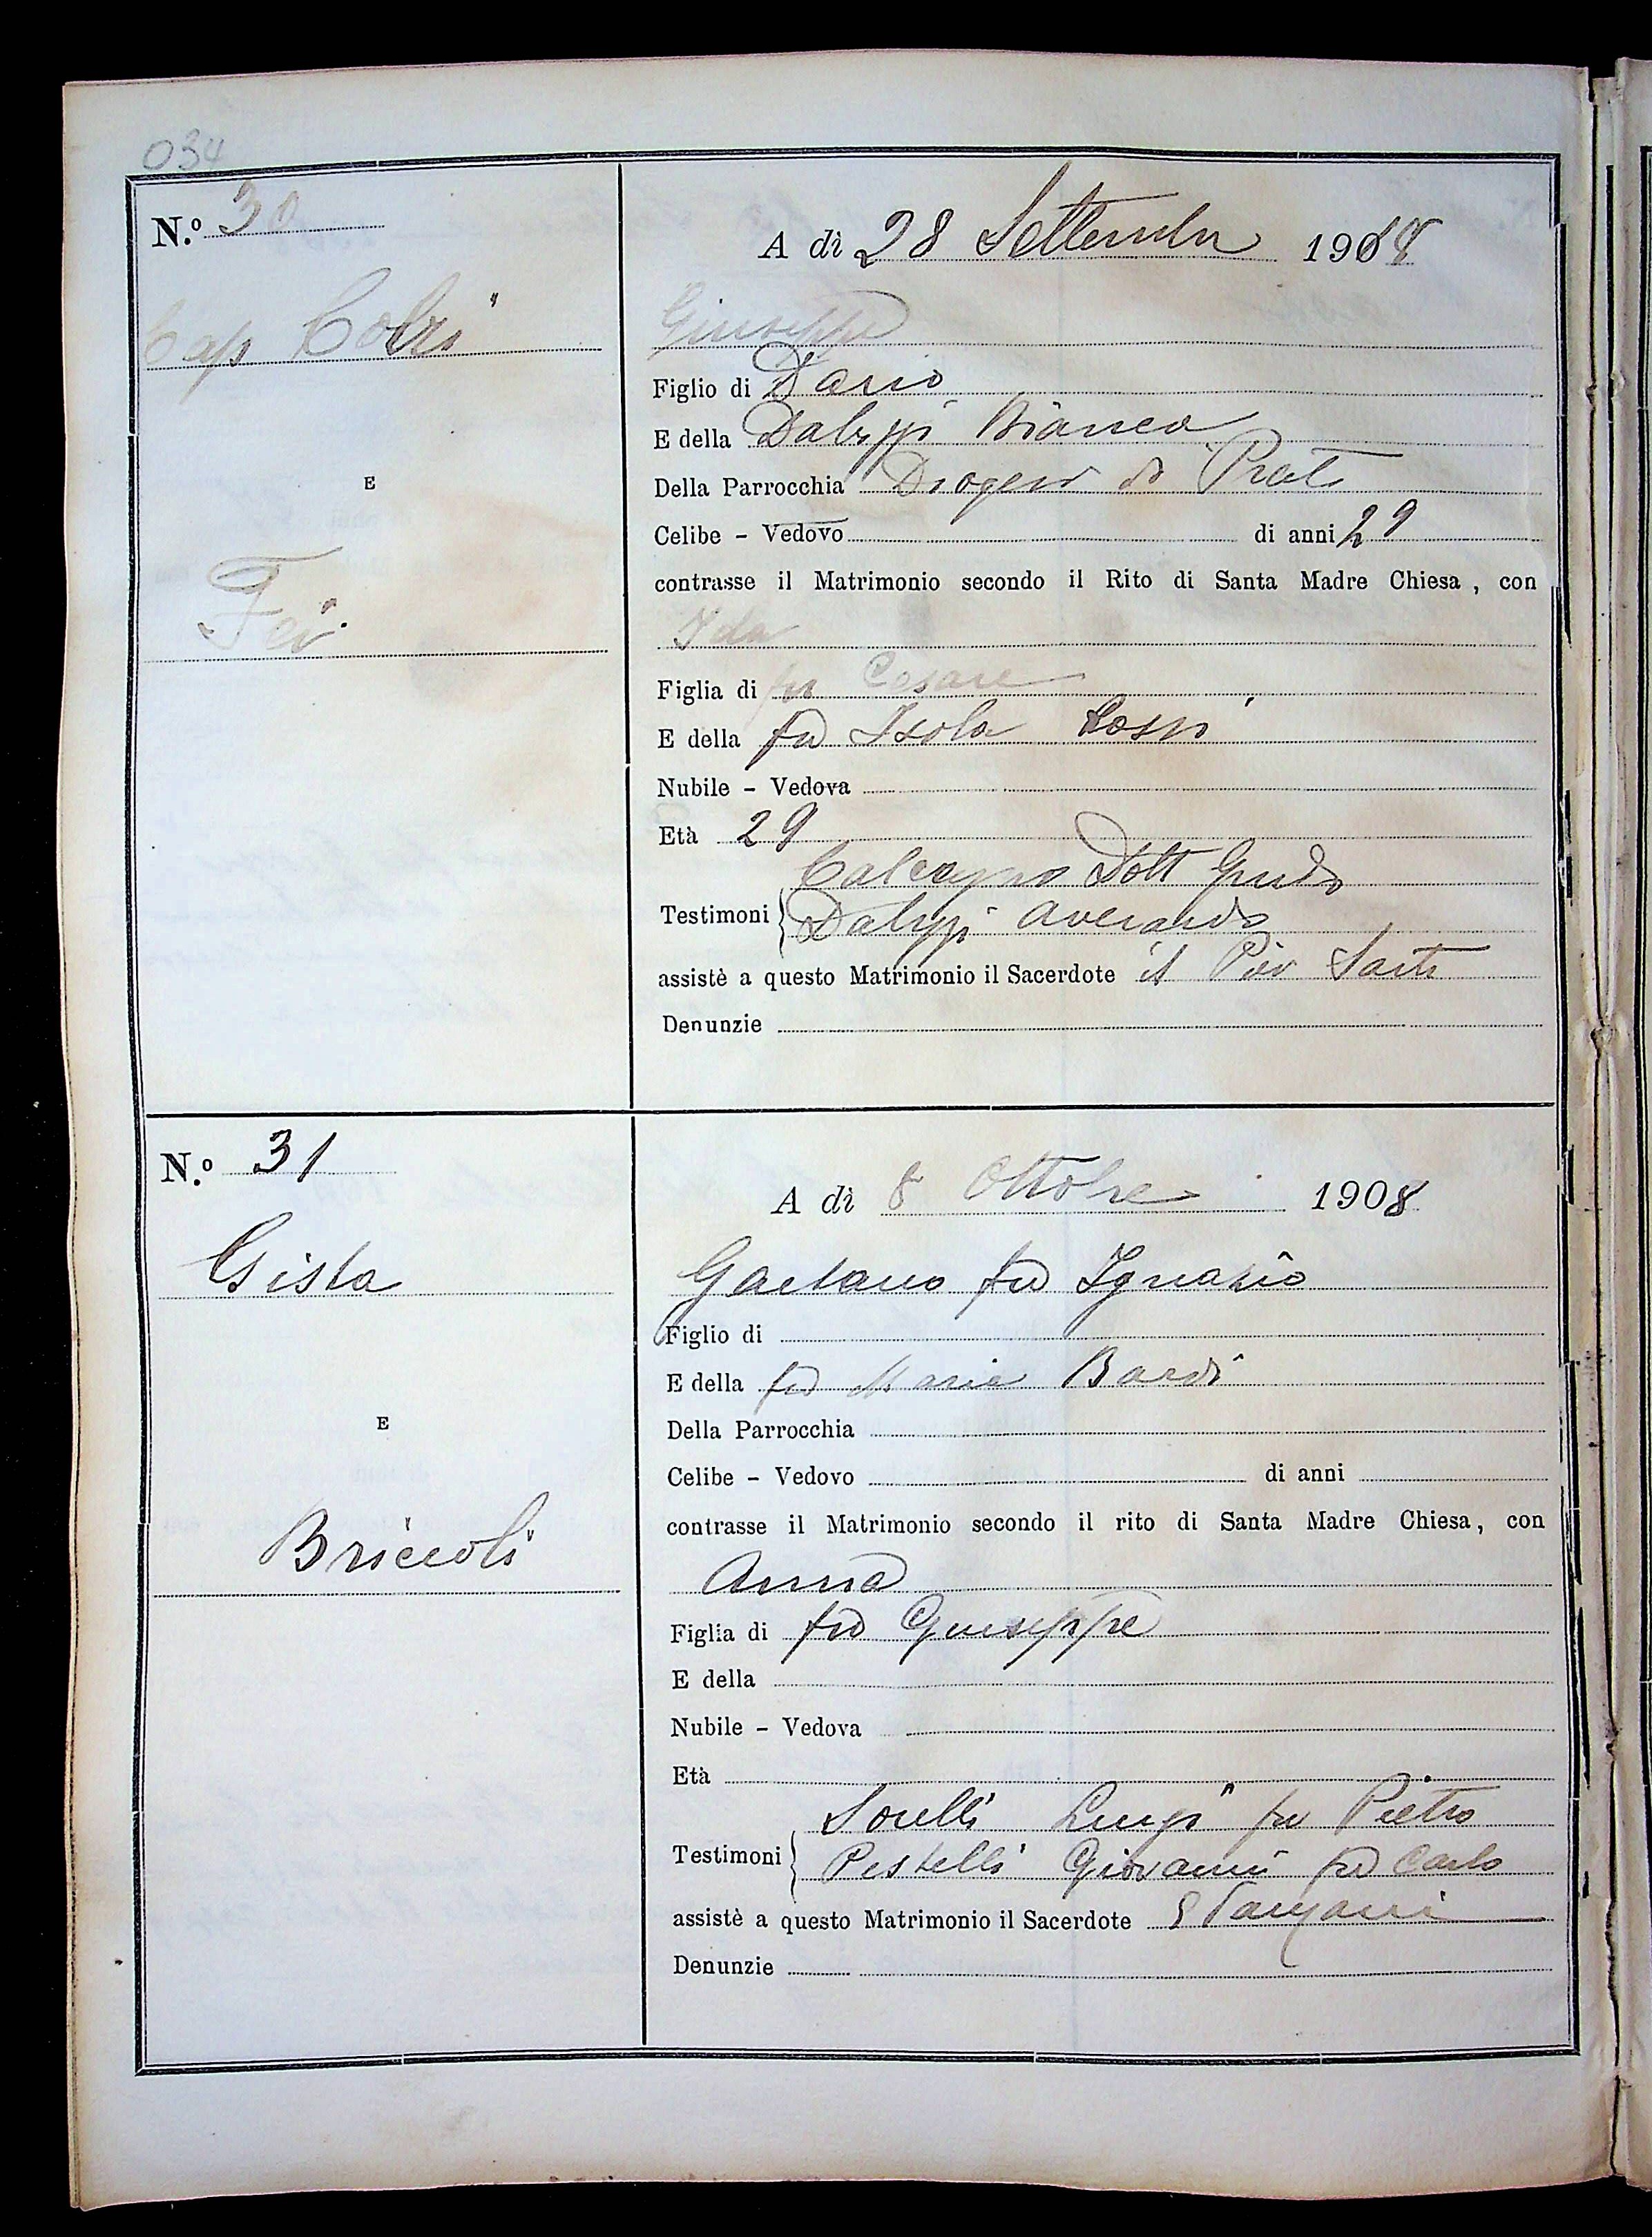 034
N.º 30
A dì 28 Settembre 1908
Cap Colzi
Giuseppe
Figlio di Dario
E della Bianca
Della Parrocchia di Prato
E
Celibe - Vedovo di anni 29
contrasse il Matrimonio secondo il Rito di Santa Madre Chiesa, con
Fei
Ida
Figlia di fu Cesare
E della fu Isola Rossi
Nubile - Vedova
Età 29
Calcagno Dott Guido
Testimoni Averardo
assistè a questo Matrimonio il Sacerdote il Pior Sarti
Denunzie
N.º 31
A dì 8 Ottobre 1908
Gista
Gaetano fu Ignazio
Figlio di
E della fu Maria Bardi
E
Della Parrocchia
Celibe - Vedovo di anni
contrasse il Matrimonio secondo il rito di Santa Madre Chiesa, con
Briccoli
Anna
Figlia di fu Giuseppe
E della
Nubile - Vedova
Età
Sorelli Luigi fu Pietro
Testimoni Pestelli Giovanni fu Carlo
assistè a questo Matrimonio il Sacerdote
Denunzie